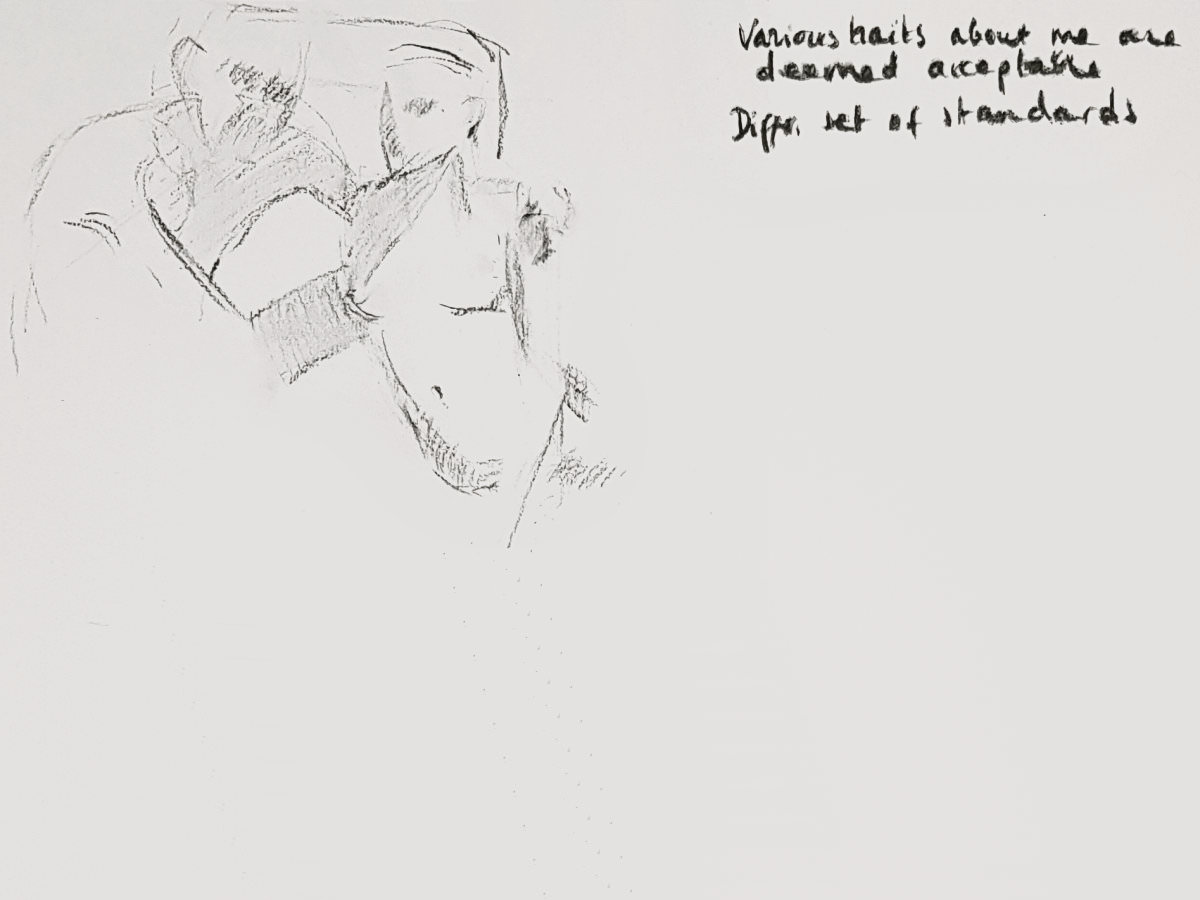 Various traits about me are
deemed acceptable
Diffr. set of standards